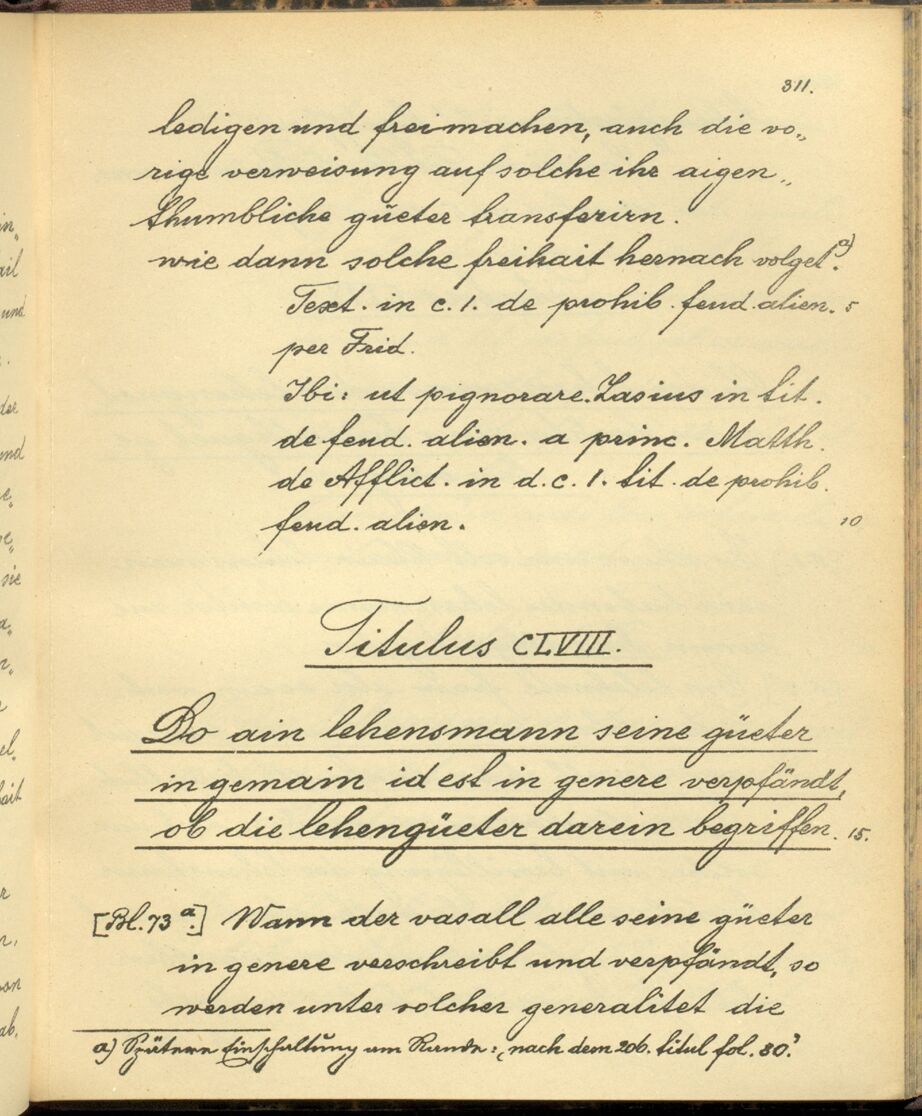 311.
ledigen und freimachen, auch die vo„
rige verweisung auf solche ihr aigen„
thumbliche güeter transferirn.
wie dann solche freihait hernach volget a).
Text. in c. 1. de prohib. feud. alien. 5
per Frid.
Ibi: ut pignorare. Zasius in tit.
de feud. alien. a princ. Matth.
de Afflict. in d. c. 1. tit. de prohib.
feud. alien. 10
Titulus CLVIII.
Do ain lehensmann seine güeter
in gemain id est in genere verpfändt,
ob die lehengüeter darein begriffen. 15.
[Bl. 73 a.] Wann der vasall alle seine güeter
in genere verschreibt und verpfändt, so
werden unter solcher generalitet die
a) Spätere Einschaltung am Rande: „nach dem 206. titul fol. 80."
in„
ail
und
der
und
e„
sie
a„
el„
hait
r
ab.